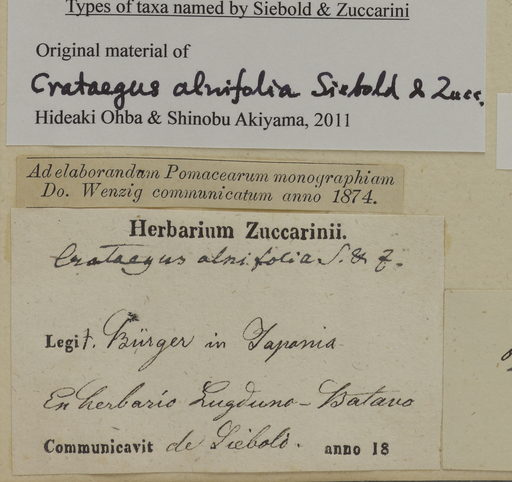 Types of taxa named by Siebold & Zuccarini
Original material of
Crataegus alnifolia Siebold & Zucc.
Hideaki Ohba & Shinobu Akiyama, 2011
Ad elaborandam Pomacearum monographiam
Do. Wenzig communicatum anno 1874.
Herbarium Zuccarinii.
Crataegus alnifolia S. & Z.
Legit. Bürger in Japonia
Ex herbario Lugduno-Batavo
Communicavit de Siebold. anno 18